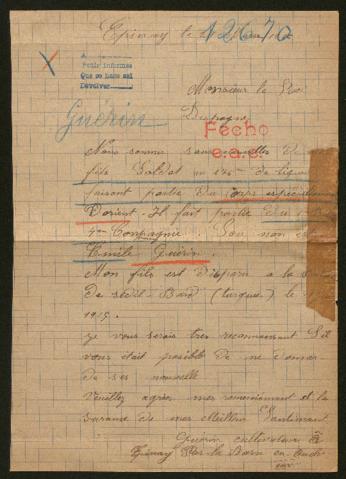 Epinay le
12670
A
Pedir informes
Que se hace asi
Devolver
Monsieur le Roi
Despagne
Guérin
Fecho
Nous somme sans nouvelles de
fils Soldat au 175me de ligne
faisant partie du Corps expéditionn
Dorient. Il fait partie du 1
4me Compagnie. Son nom est
Emile Guérin.
Mon fils est Disparu a la
De Sedil-Bard (turquie) le
1915.
Je vous serais tres reconnaissant Sil
vous était posible de me donner
de ses nouvelle
Veuillez agréer mes remerciement et la
de mes Meilleur Sentiment
Guérin cultivateur à
Epinay Par la Barre en Ouche